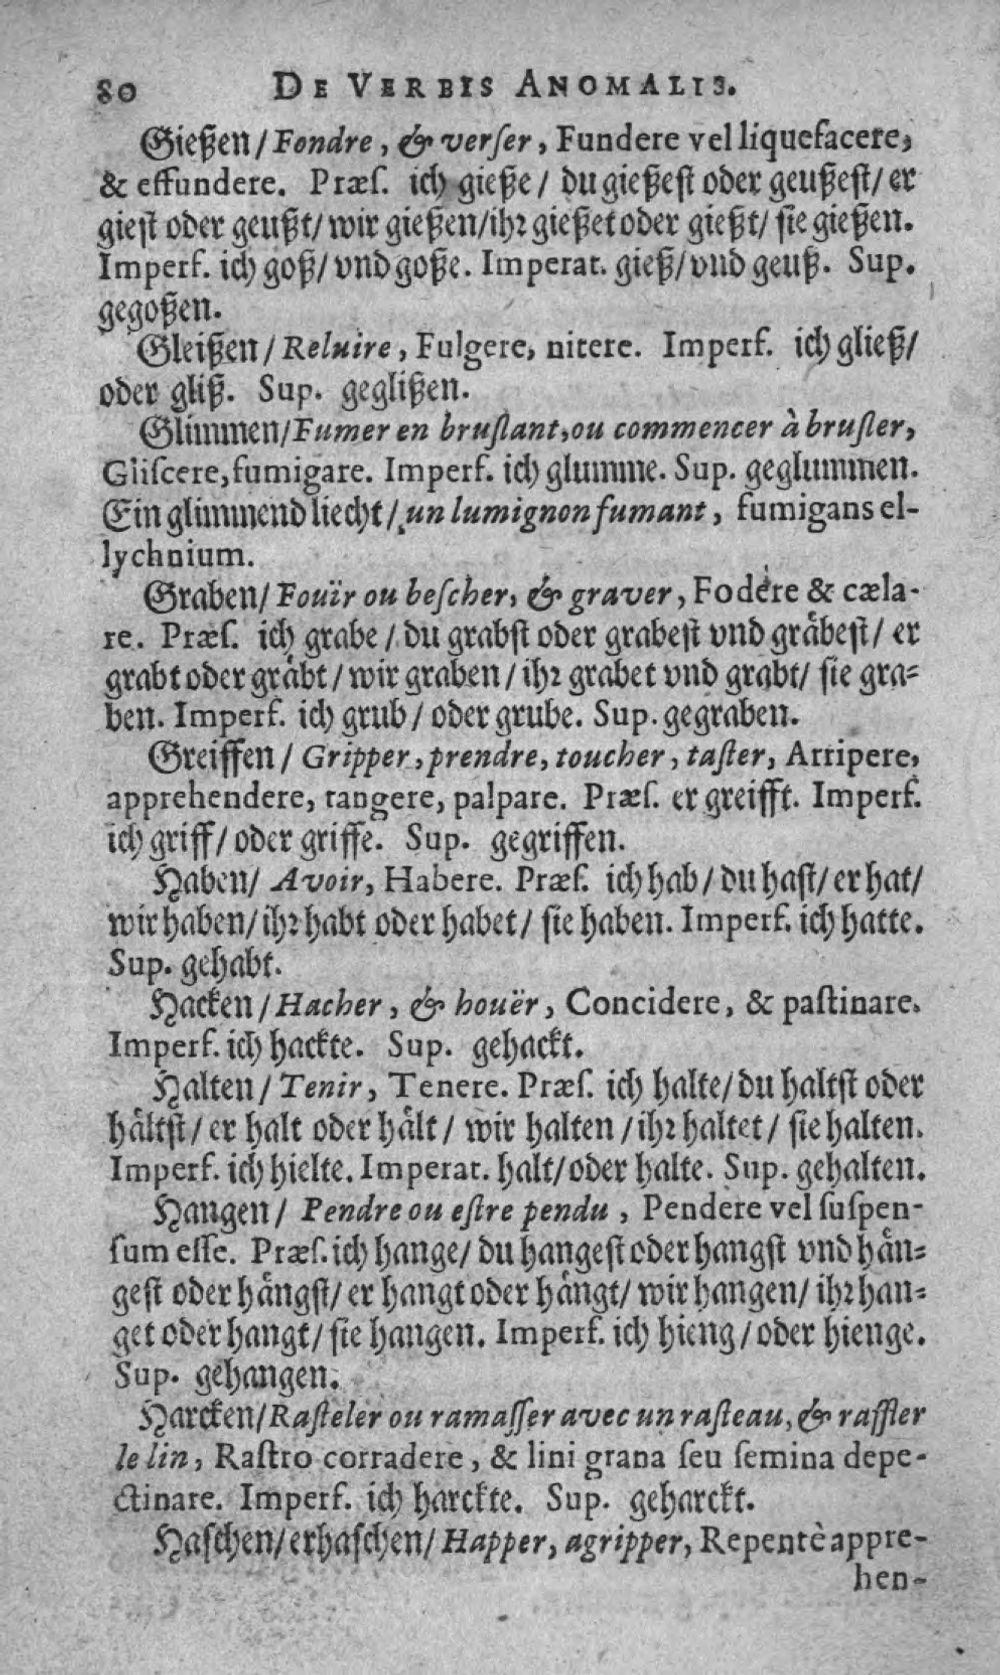 80 DE VERBIS ANOMALIS.
Gießen / Fondre, & verſer, Fundere vel liquefacere,
& effundere. Præſ. ich gieße / du gießeſt oder geußeſt / er
gieſt oder geußt / wir gießen / ihr gießet oder gießt / ſie gießen.
Imperf. ich goß / vnd goße. Imperat. gieß / vnd geuß. Sup.
gegoßen.
Gleißen / Reluire, Fulgere, nitere. Imperf. ich gließ /
oder gliß. Sup. geglißen.
Glimmen / Fumer en bruſlant, ou commencer à bruſler,
Gliſcere, fumigare. Imperf. ich glumme. Sup. geglummen.
Ein glimmend liecht / un lumignon fumant, fumigans el-
lychnium.
Graben / Fouïr ou beſcher, & graver, Fodère & cæla-
re. Præſ. ich grabe / du grabſt oder grabeſt vnd gräbeſt / er
grabt oder gräbt / wir graben / ihr grabet vnd grabt / ſie gra-
ben. Imperf. ich grub / oder grube. Sup. gegraben.
Greiffen / Gripper, prendre, toucher, taſter, Arripere,
apprehendere, tangere, palpare. Præſ. er greifft. Imperf.
ich griff / oder griffe. Sup. gegriffen.
Haben / Avoir, Habere. Præſ. ich hab / du haſt / er hat /
wir haben / ihr habt oder habet / ſie haben. Imperf. ich hatte.
Sup. gehabt.
Hacken / Hacher, & houër, Concidere, & paſtinare.
Imperf. ich hackte. Sup. gehackt.
Halten / Tenir, Tenere. Præſ. ich halte / du haltſt oder
hältſt / er halt oder hält / wir halten / ihr haltet / ſie halten.
Imperf. ich hielte. Imperat. halt / oder halte. Sup. gehalten.
Hangen / Pendre ou eſtre pendu, Pendere vel ſuſpen-
ſum eſſe. Præſ. ich hange / du hangeſt oder hangſt vnd hän-
geſt oder hängſt / er hangt oder hängt / wir hangen / ihr han-
get oder hangt / ſie hangen. Imperf. ich hieng / oder hienge.
Sup. gehangen.
Harcken / Raſteler ou ramaſſer avec un raſteau, & raffler
le lin, Raſtro corradere, & lini grana ſeu ſemina depe-
ctinare. Imperf. ich harckte. Sup. geharckt.
Haſchen / erhaſchen / Happer, agripper, Repentè appre-
hen-